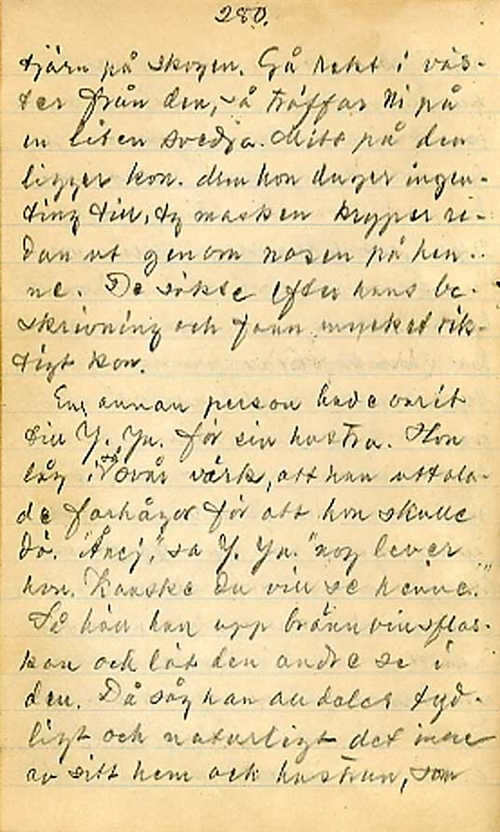 280.
tjärn på skogen. Gå rakt i väs-
ter från den, så träffar Ni på
en liten svedja. Mitt på den
ligger kon. Men hon duger ingen-
ting till, ty masken kryper re-
dan ut genom nosen på hen-
ne. De sökte efter hans be-
skrivning och fann mycket rik-
tigt kon.
En annan person hade varit
till Y. Yn. för sin hustru. Hon
låg i så svår värk, att han uttala-
de farhågor för att hon skulle
dö. "Ånej," sa Y. Yn. "nog lever
hon. Kanske du vill se henne."
Så höll han upp brännvinsflas-
kan och lät den andre se i
den. Då såg han alldeles tyd-
ligt och naturligt det inre
av sitt hem och hustrun, som